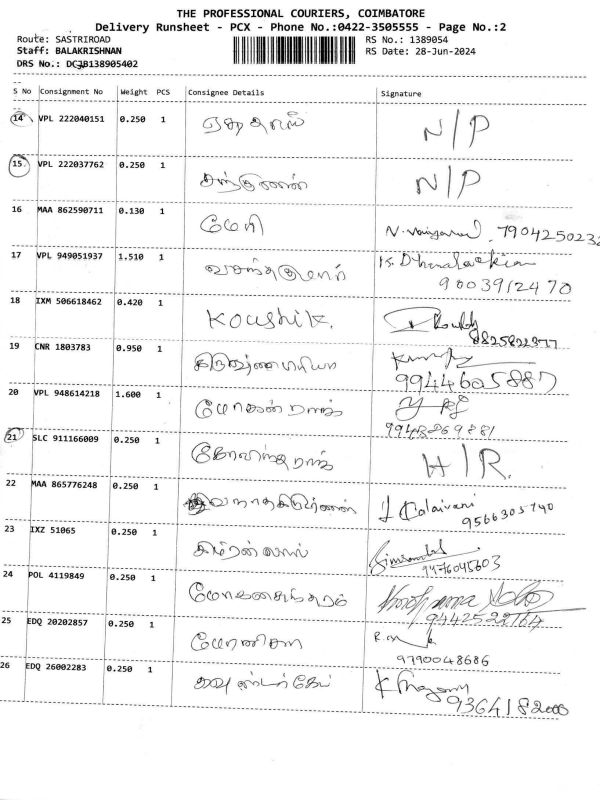 THE PROFESSIONAL COURIERS, COIMBATORE
Delivery Runsheet - PCX - Phone No.:0422-3505555 - Page No.:2
Route: SASTRIROAD RS No.: 1389054
Staff: BALAKRISHNAN RS Date: 28-Jun-2024
DRS No.: DCJB138905402
S No Consignment No Weight PCS Consignee Details Signature
14 VPL 222040151 0.250 1 N/P
15 VPL 222037762 0.250 1 N/P
16 MAA 862590711 0.130 1 மேரி 7904250232
17 VPL 949051937 1.510 1 வசந்தகுமார் 9003912470
18 IXM 506618462 0.420 1 Koushik. 8825822377
19 CNR 1803783 0.950 1 9944605887
20 VPL 948614218 1.600 1 மோகன்ராஜ்
21 SLC 911166009 0.250 1 கோவிந்தராஜ் H/R.
22 MAA 865776248 0.250 1 Kalaivani
9566305740
23 IXZ 51065 0.250 1 சிம்ரன்லால் 9476045603
24 POL 4119849 0.250 1 மோகனசுந்தரம் 9442522764
25 EDQ 20202857 0.250 1 மோனிசா 9790048686
26 EDQ 26002283 0.250 1